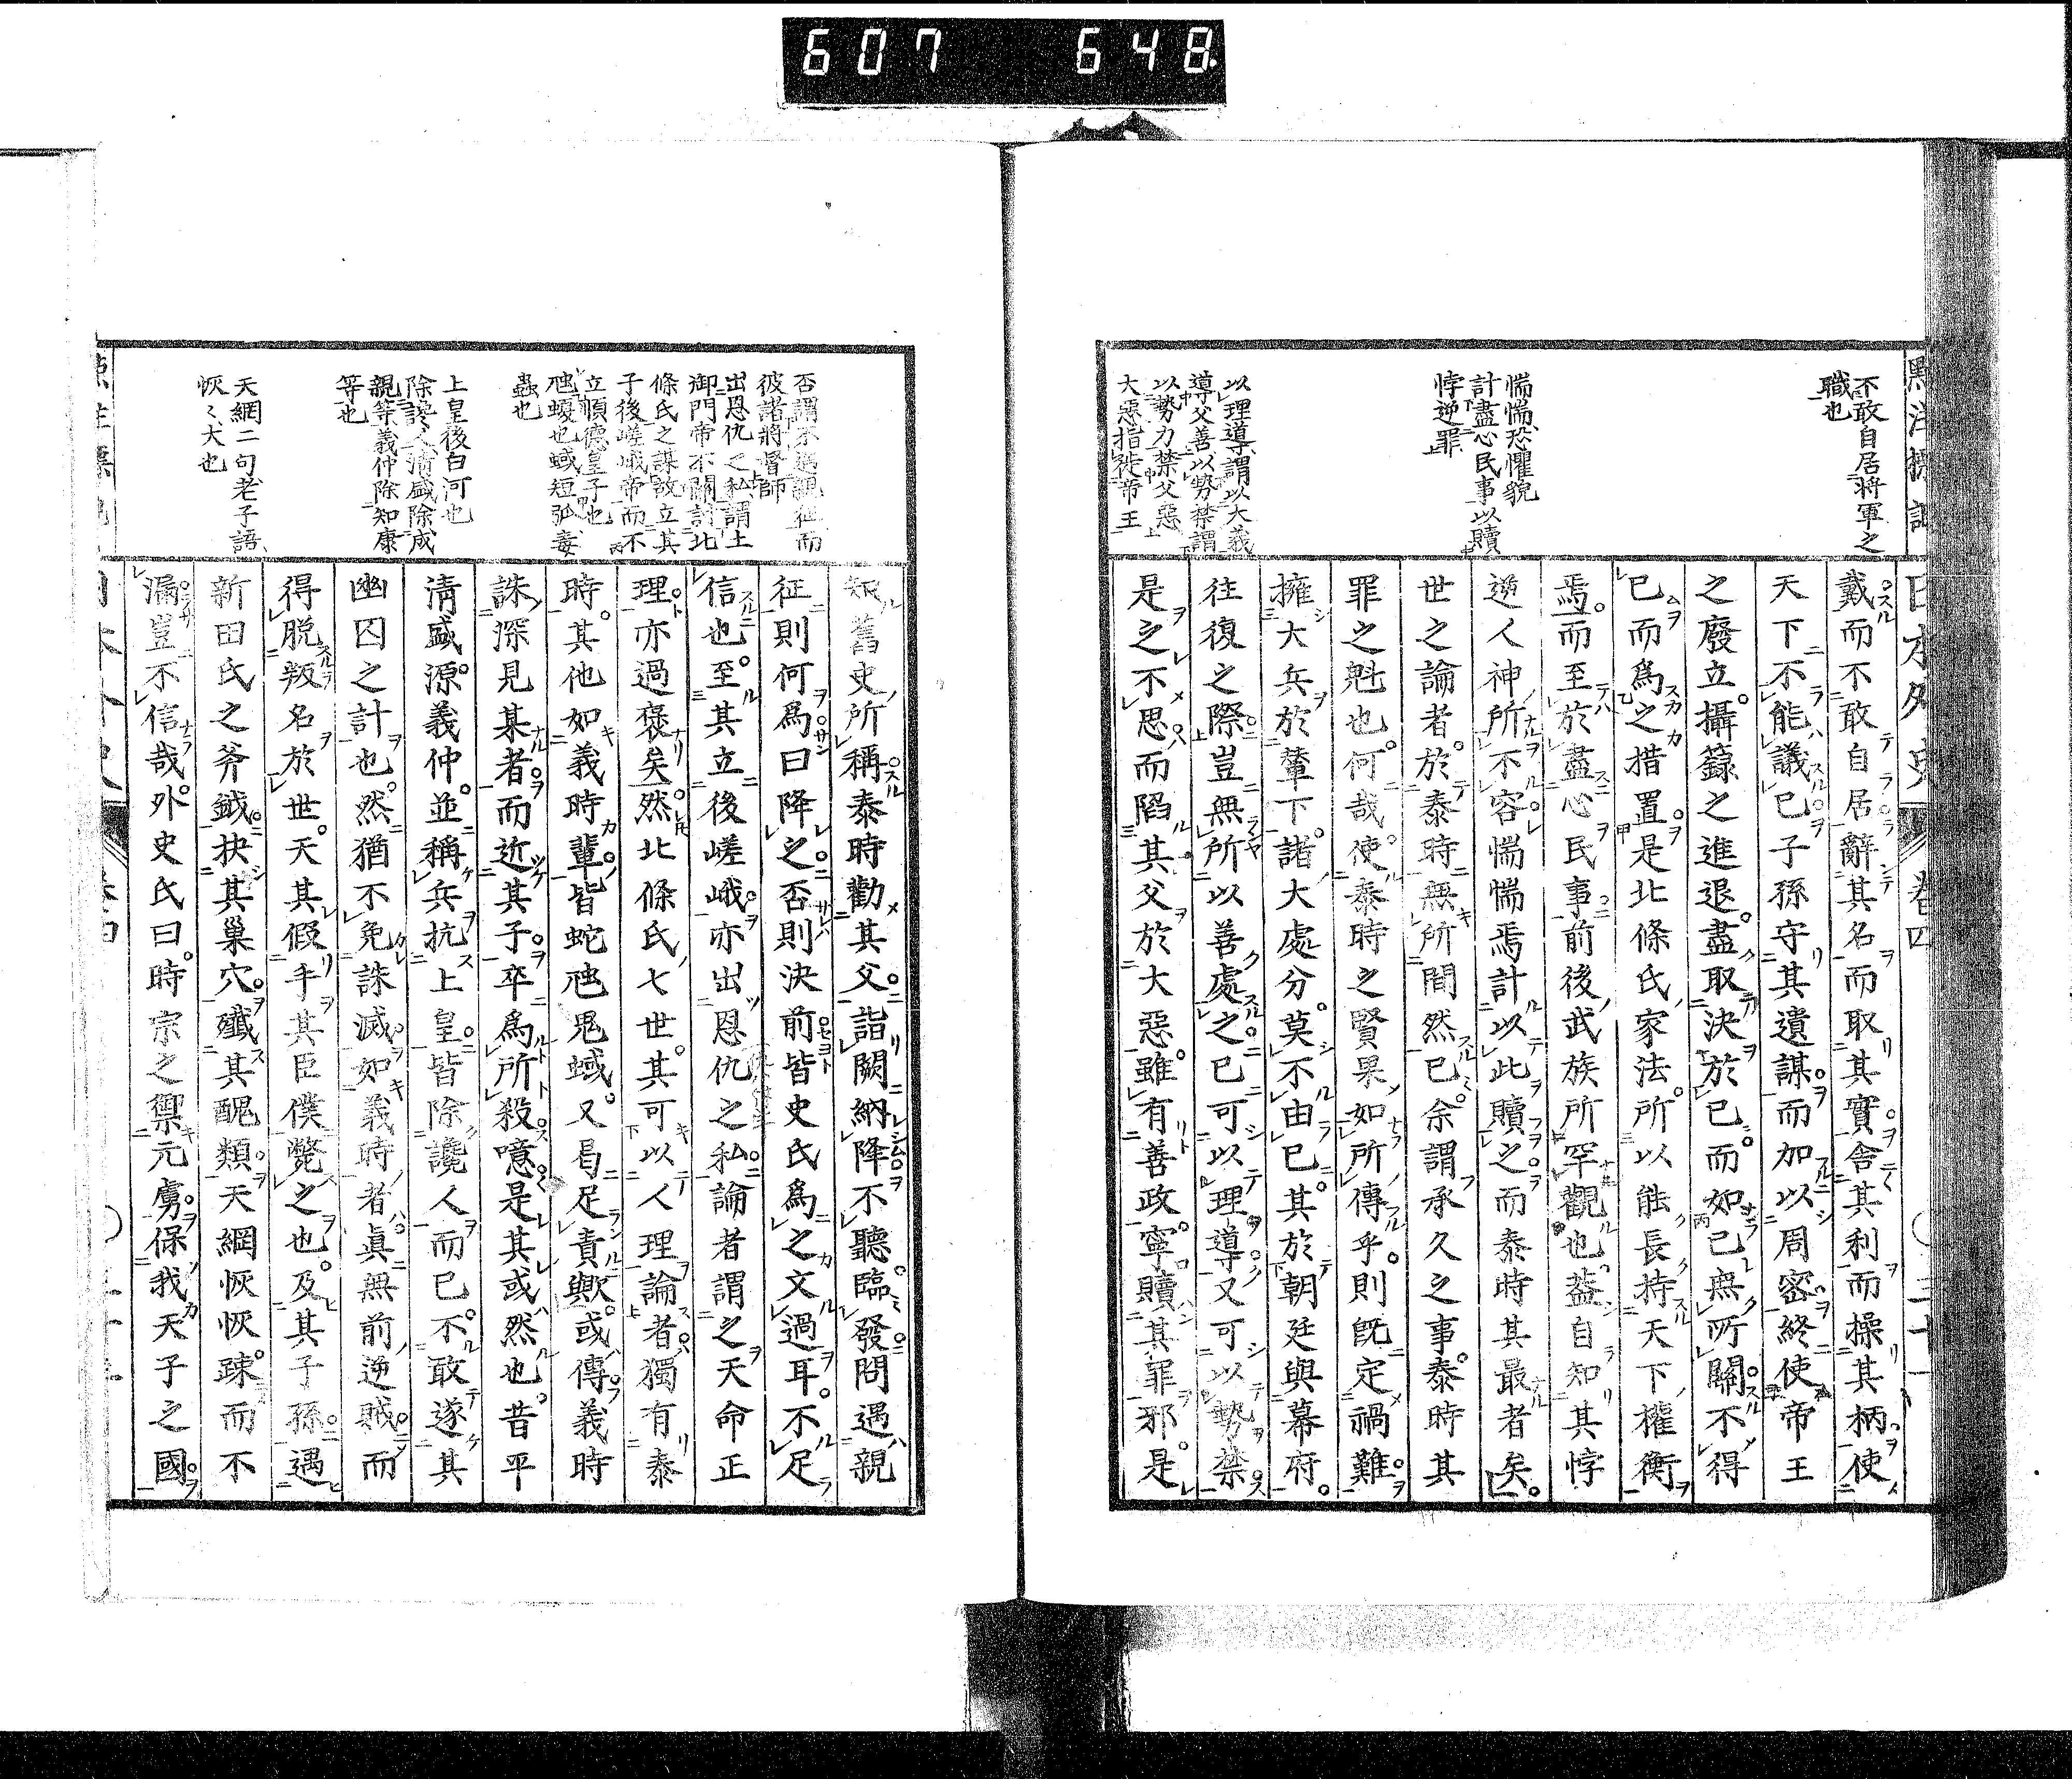 607 648
日本外史 卷四 三十一
不敢自居將軍之
職也
惴惴恐懼貌
計盡心民事以贖
悖逆罪
以理導謂以大義
導父善以勢禁謂
以勢力禁父惡
大惡指徙帝王
戴而不敢自居辭其名而取其實舍其利而操其柄使
天下不能議己子孫守其遺謀而加以周密終使帝王
之廢立攝籙之進退盡取決於己而如己無所關不得
已而爲之措置是北條氏家法所以能長持天下權衡
焉而至於盡心民事前後武族所罕觀也蓋自知其悖
逆人神所不容惴惴焉計以此贖之而泰時其最者矣
世之論者於泰時無所間然已余謂承久之事泰時其
罪之魁也何哉使泰時之賢果如所傳乎則既定禍難
擁大兵於輦下諸大處分莫不由已其於朝廷與幕府
往復之際豈無所以善處之已可以理導又可以勢禁
是之不思而陷其父於大惡雖有善政寧贖其罪邪是
否謂不遇親征而
彼諾將督師
出恩仇之私謂土
御門帝不關討北
條氏之謀故立其
子後嵯峨帝而不
立順德皇子也
虺蝮也蜮短弧毒
蟲也
上皇後白河也
除讒人清盛除成
親等義仲除知康
等也
天網二句老子語
恢〻大也
舊史所稱泰時勸其父詣闕納降不聽臨發問遇親
征則何爲曰降之否則決前皆史氏爲之文過耳不足
信也至其立後嵯峨亦出恩仇之私論者謂之天命正
理亦過褒矣然北條氏七世其可以人理論者獨有泰
時其他如義時輩皆蛇虺鬼蜮又曷足責歟或傳義時
誅深見某者而近其子卒爲所殺噫是其或然也昔平
清盛源義仲並稱兵抗上皇皆除讒人而已不敢遂其
幽囚之計也然猶不免誅滅如義時者眞無前逆賊而
得脫叛名於世天其假手其臣僕斃之也及其子孫遇
新田氏之斧鉞抉其巢穴殲其醜類天網恢恢疎而不
漏豈不信哉外史氏曰時宗之禦元虜保我天子之國